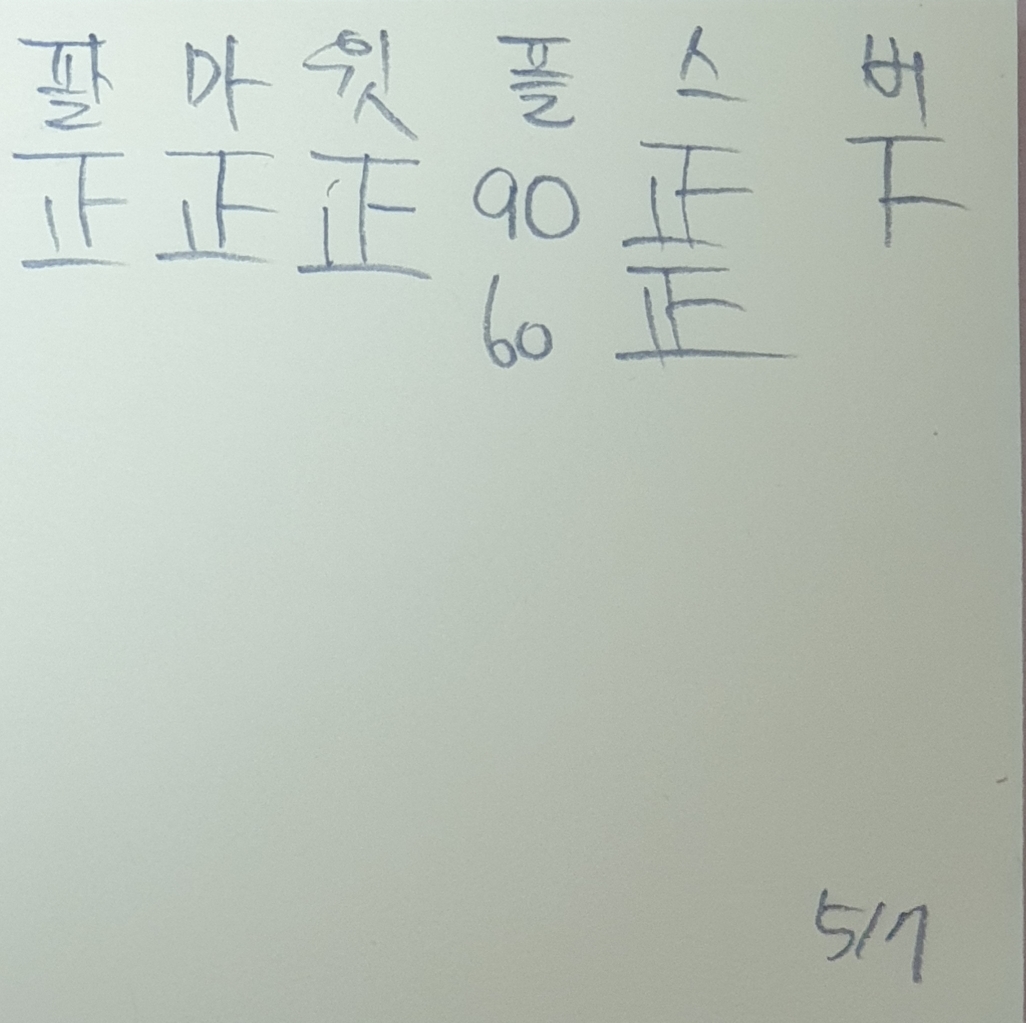 팔 마 윗 플 스 버
正 正 正 90 正 下
60 正
5/7